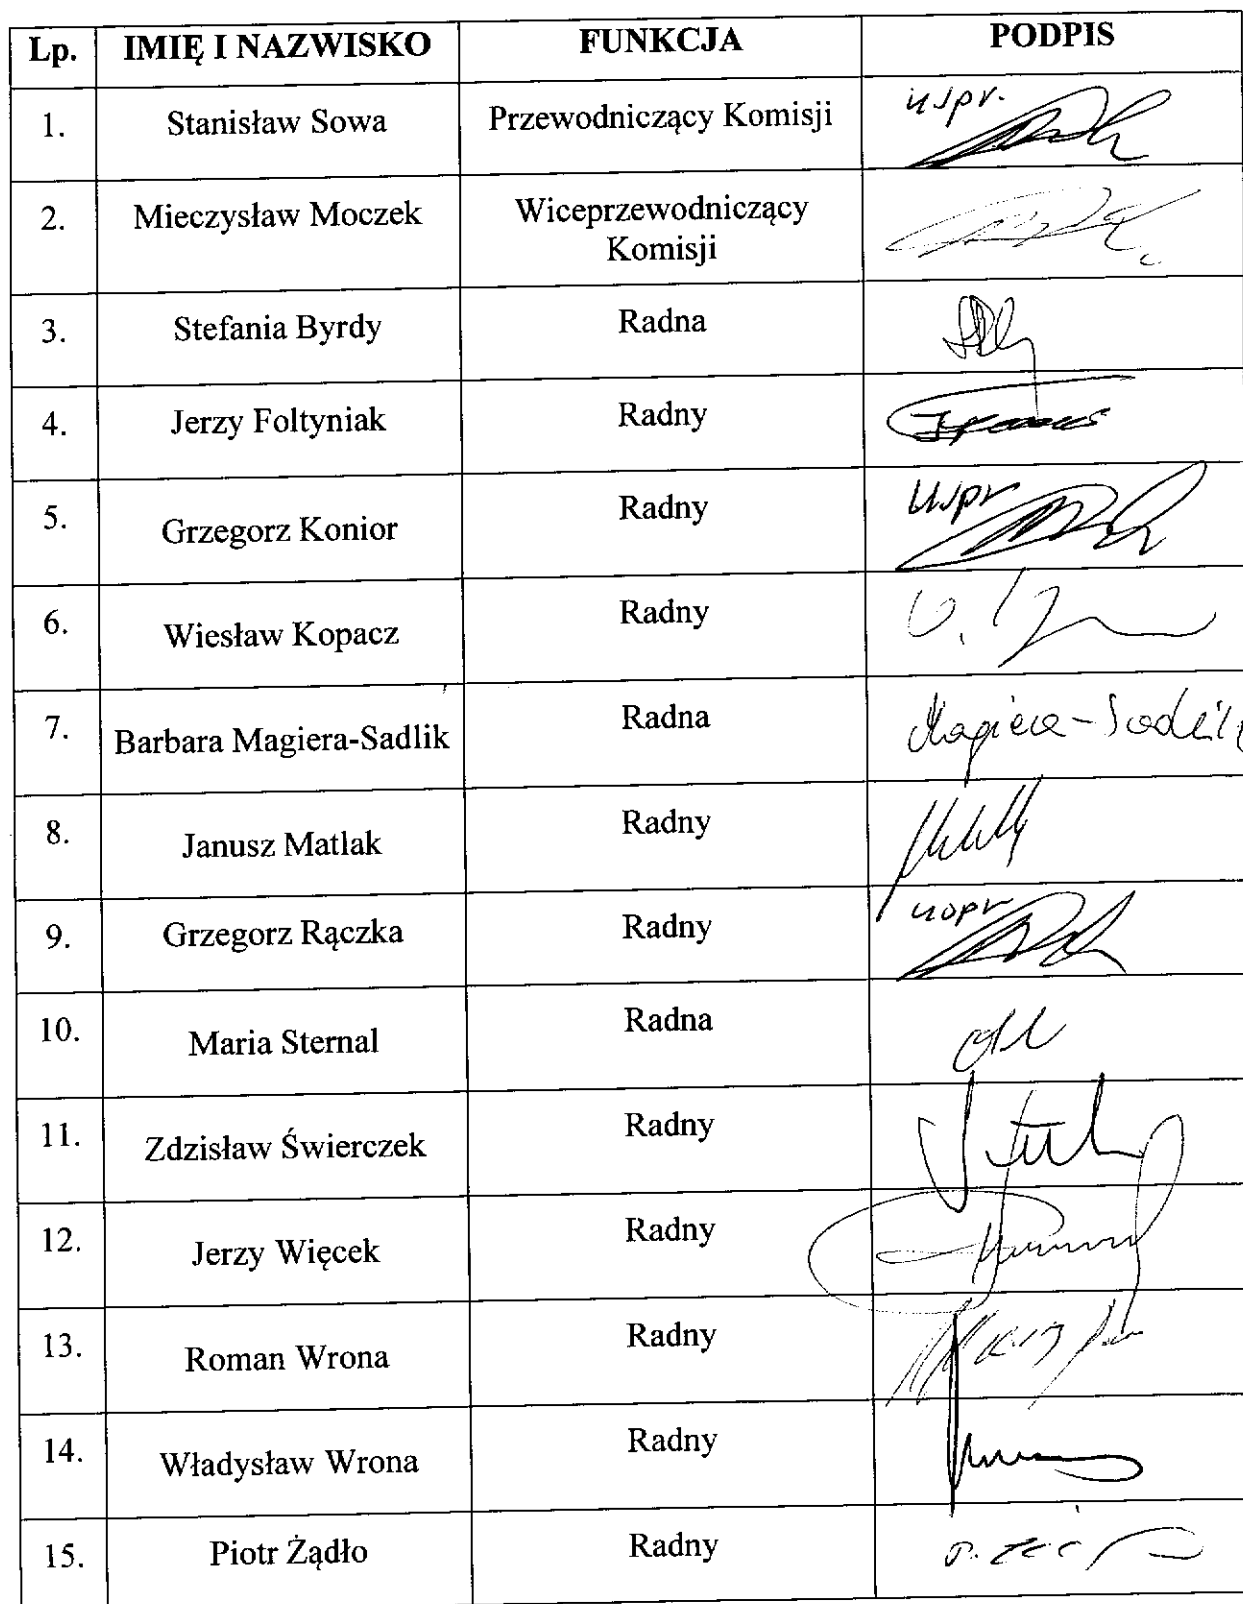 Lp. IMIĘ I NAZWISKO FUNKCJA PODPIS
1. Stanisław Sowa Przewodniczący Komisji uspr.
2. Mieczysław Moczek Wiceprzewodniczący
Komisji
3. Stefania Byrdy Radna
4. Jerzy Foltyniak Radny
5. Grzegorz Konior Radny uspr
6. Wiesław Kopacz Radny
7. Barbara Magiera-Sadlik Radna Magiera-Sadlik
8. Janusz Matlak Radny
9. Grzegorz Rączka Radny uspr
10. Maria Sternal Radna
11. Zdzisław Świerczek Radny
12. Jerzy Więcek Radny
13. Roman Wrona Radny
14. Władysław Wrona Radny
15. Piotr Żądło Radny